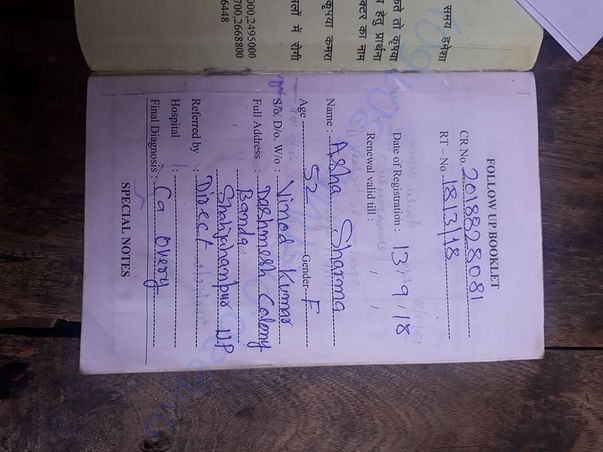 समय हमेशा
कृपया
हेतु प्रार्थना
क्टर का नाम
कृपया कमरा
लों में रोगी
000,2495000
700,2668800
6448
FOLLOW UP BOOKLET
CR No. 2018828081
RT - No. 1813/18
Date of Registration : 13/9/18
Renewal valid till :
Name : Asha Sharma
Age 52 Gender F
S/o. D/o. W/o : Vinod Kumar
Full Address : Dashmesh Colony
Banda
Shahjahanpur UP
Referred by : Direct
Hospital :
Final Diagnosis : Ca Overy
SPECIAL NOTES